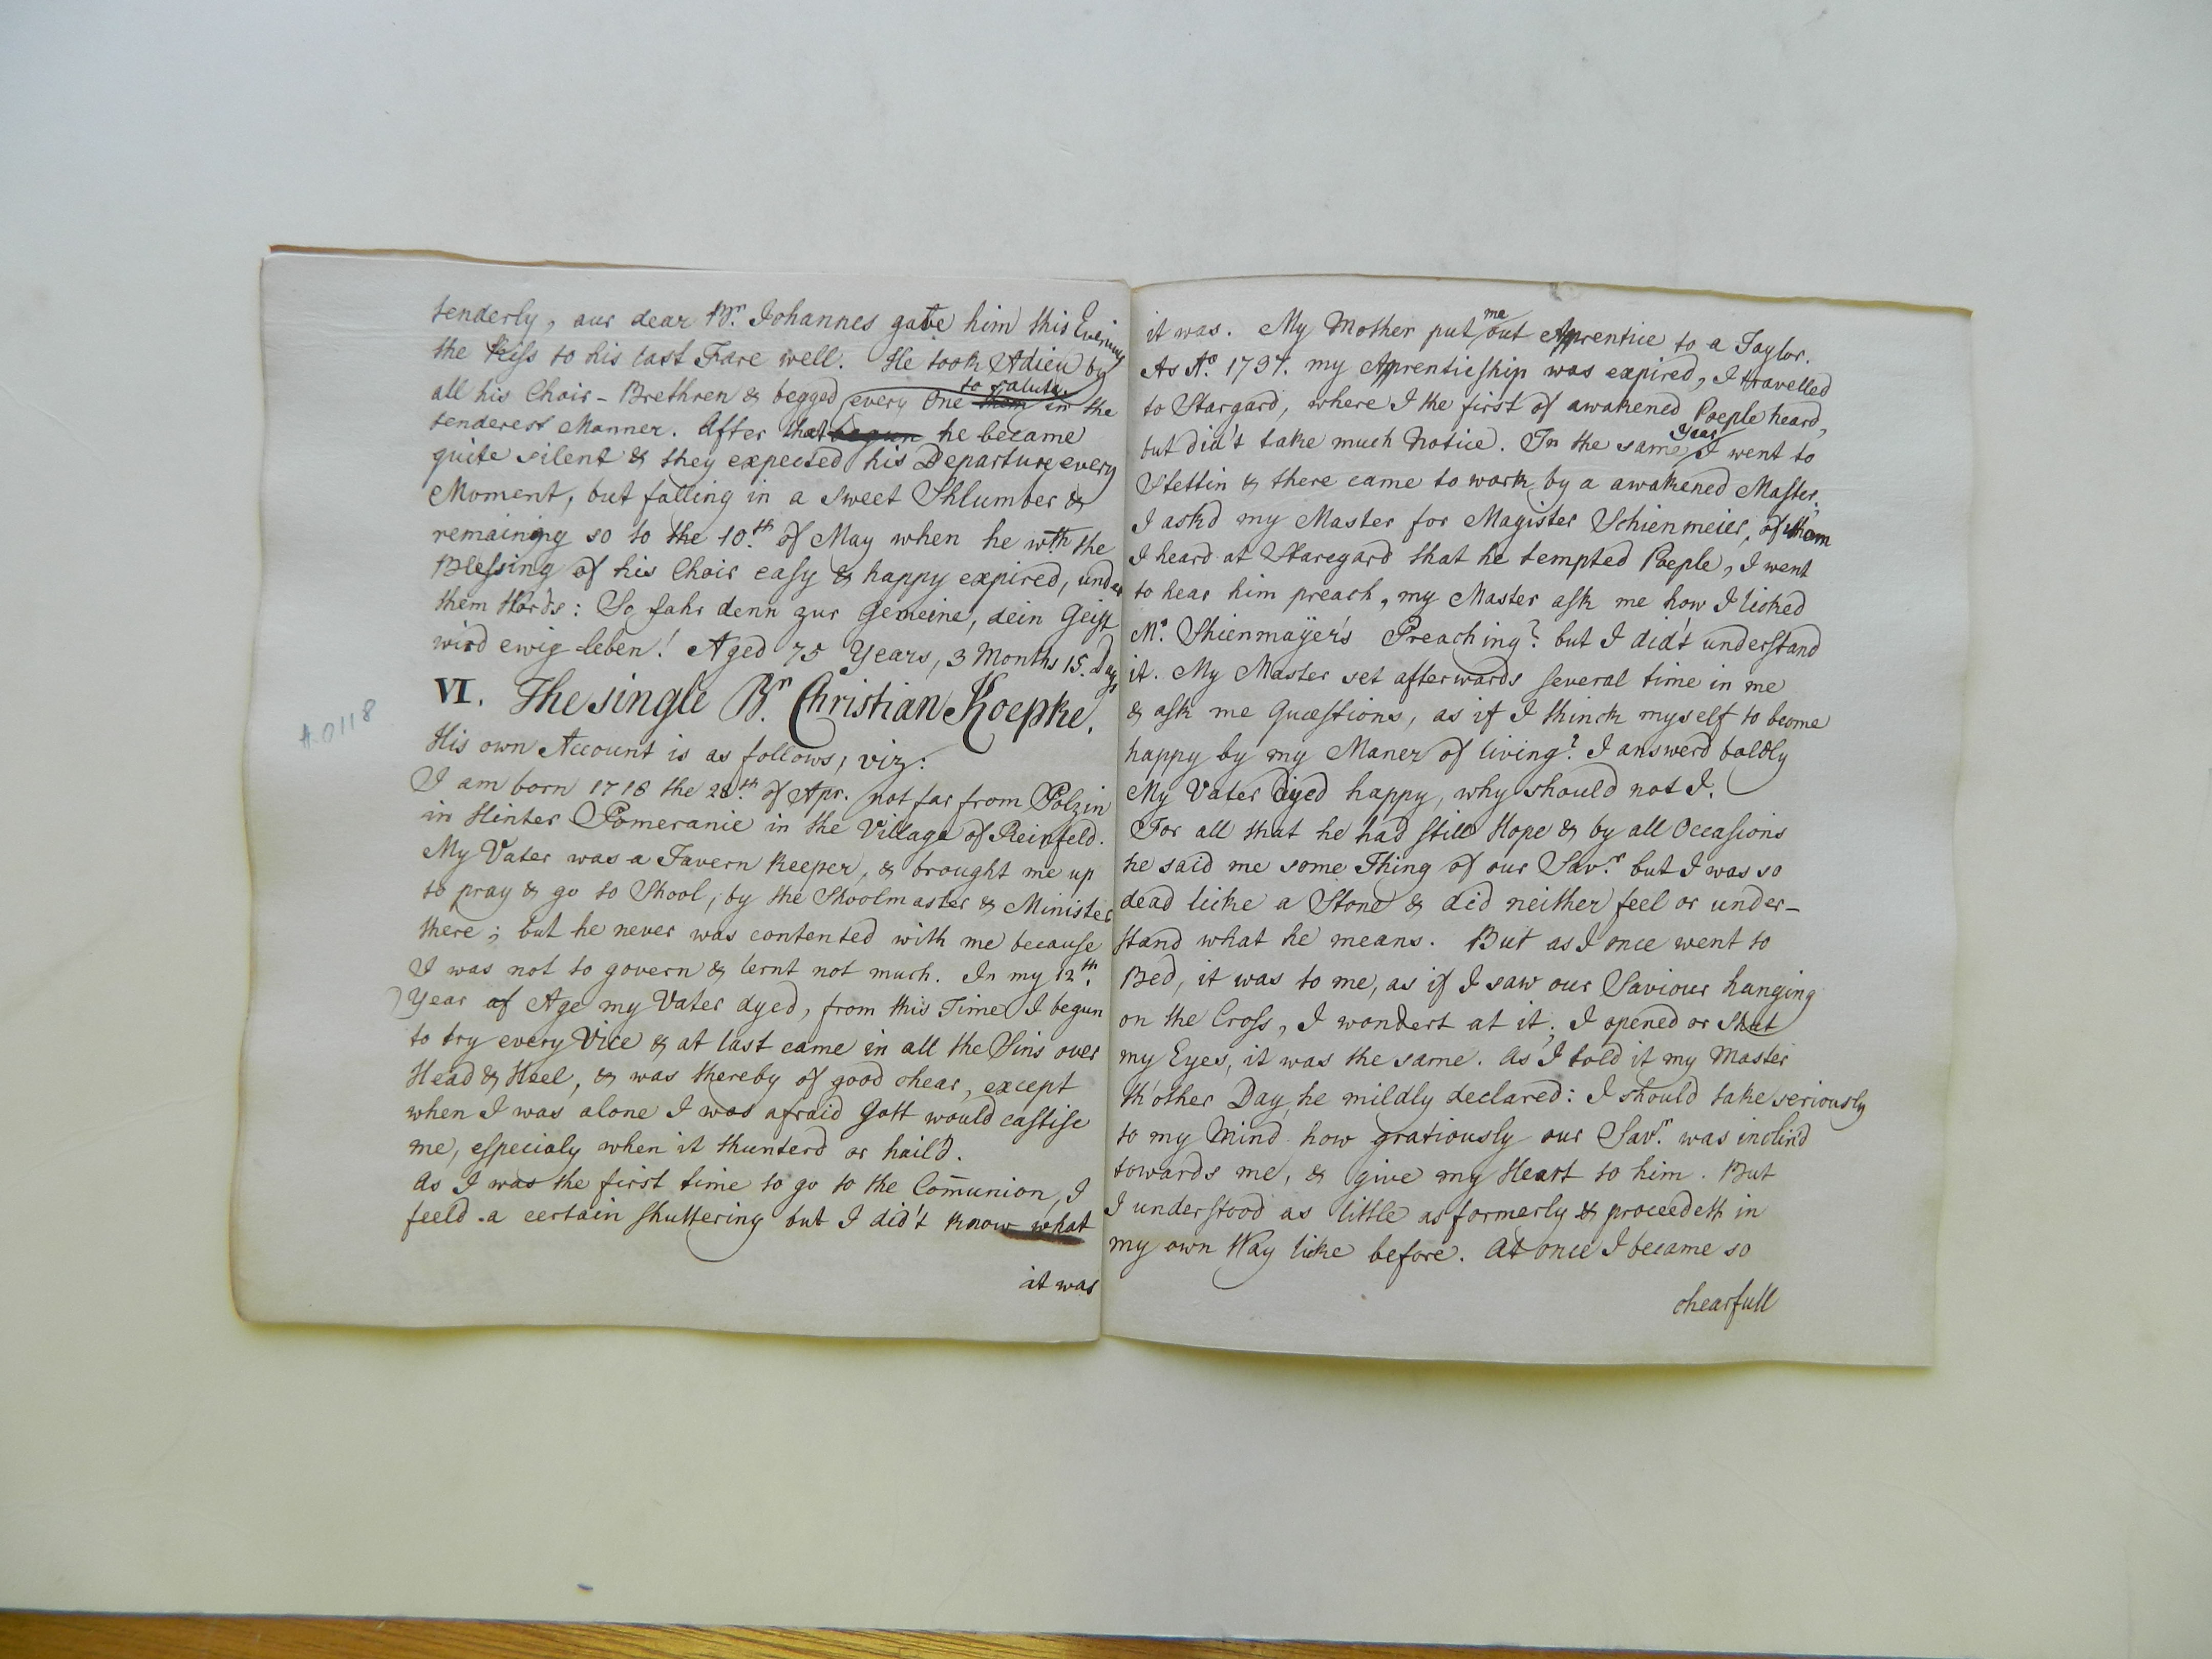 tenderly, our dear Br. Johannes gave him this Evening
the Kiss to his last Fare well. He took Adieu by
all his Choir-Brethren & begged to salute every One them in the
tenderest Manner. After that begun he became
quite silent & they expected his Departure every
Moment, but falling in a sweet Shlumber &
remaining so to the 10th. of May when he wth the
Blessing of his Choir easy & happy expired, under
them Words: So fahr denn zur Gemeine, dein Geist
wird ewig leben! Aged 75 Years, 3 Months 15. Days
VI. The single Br. Christian Koepke.
A.0118
His own Account is as follows, viz:
I am born 1718 the 28th. of Apr. not far from Polzin
in Hinter Pomeranie in the Village of Reinfeld.
My Vater was a Tavern Keeper, & brought me up
to pray & go to Shool, by the Shoolmaster & Minister
there; but he never was contented with me because
I was not to govern & lernt not much. In my 12th.
Year of Age my Vater dyed, from this Time I begun
to try every Vice & at last came in all the Sins over
Head & Heel, & was thereby of good chear, except
when I was alone I was afraid Gott would castise
me, especialy when it thunterd or hail'd.
As I was the first time to go to the Com̄union, I
feeld a certain shuttering but I did't know what
it was
it was. My Mother put me out Apprentice to a Taylor.
As Ao. 1737. my Apprenticship was expired, I travelled
to Stargard, where I the first of awakened Poeple heard,
but did't take much Notice. In the same Year I went to
Stettin & there came to work by a awakened Master.
I ask'd my Master for Magister Schienmeier, of whom
I heard at Staregard that he tempted Poeple, I went
to hear him preach, my Master ask me how I licked
Mr. Shienmaÿer's Preaching? but I did't understand
it. My Master set afterwards several time in me
& ask me Quæstions, as if I thinck myself to become
happy by my Maner of living? I answerd boldly
My Vater dyed happy, why should not I.
For all that he had still Hope & by all Occasions
he said me some Thing of our Savr. but I was so
dead licke a Stone & did neither feel or under-
stand what he means. But as I once went to
Bed, it was to me, as if I saw our Saviour hanging
on the Cross, I wondert at it; I opened or shut
my Eyes, it was the same. As I told it my Master
th'other Day, he mildly declared: I should take seriously
to my Mind how gratiously our Savr. was inclin'd
towards me, & give my Heart to him. But
I understood as little as formerly & proceedeth in
my own Way like before. At once I became so
chearfull